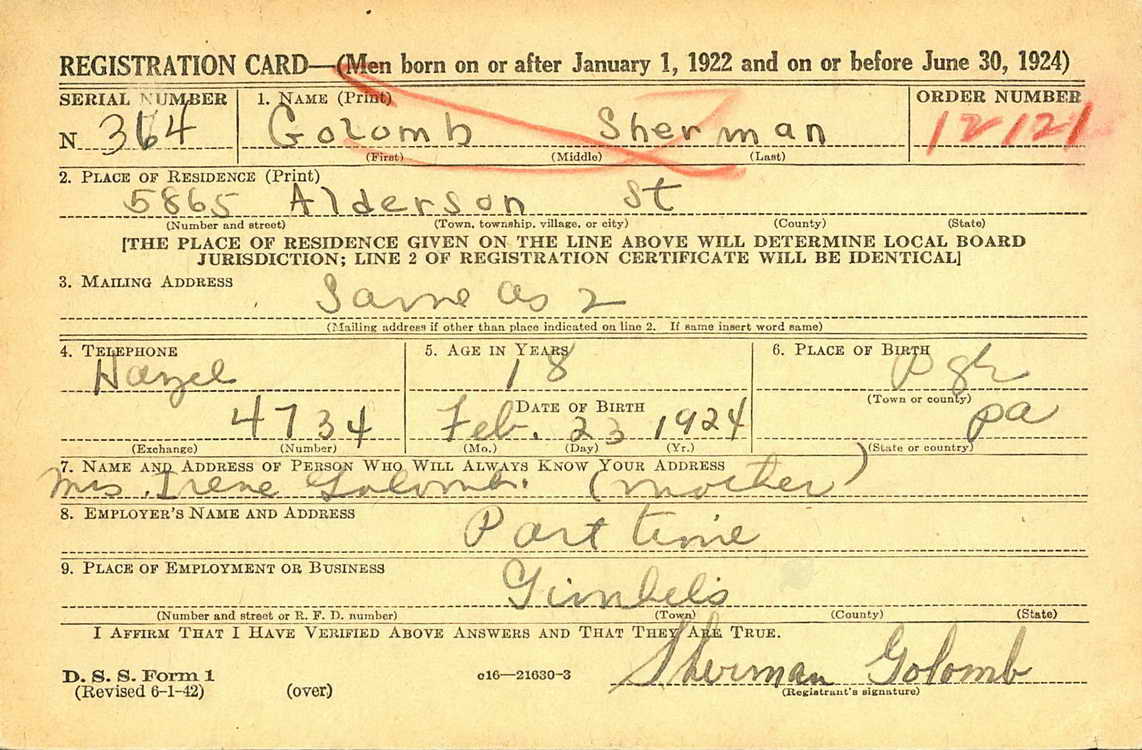 REGISTRATION CARD—(Men born on or after January 1, 1922 and on or before June 30, 1924)
SERIAL NUMBER 1. NAME (Print) ORDER NUMBER
N 364 Golomb Sherman 12121
(First) (Middle) (Last)
2. PLACE OF RESIDENCE (Print)
5865 Alderson St
(Number and street) (Town, township, village, or city) (County) (State)
[THE PLACE OF RESIDENCE GIVEN ON THE LINE ABOVE WILL DETERMINE LOCAL BOARD
JURISDICTION; LINE 2 OF REGISTRATION CERTIFICATE WILL BE IDENTICAL]
3. MAILING ADDRESS
Same as 2
(Mailing address if other than place indicated on line 2. If same insert word same)
4. TELEPHONE 5. AGE IN YEARS 6. PLACE OF BIRTH
Hazel 18 Pgh
(Town or county)
DATE OF BIRTH
4734 Feb. 23 1924 Pa
(Exchange) (Number) (Mo.) (Day) (Yr.) (State or country)
7. NAME AND ADDRESS OF PERSON WHO WILL ALWAYS KNOW YOUR ADDRESS
Mrs. Irene Golomb. (mother)
8. EMPLOYER'S NAME AND ADDRESS
Part time
9. PLACE OF EMPLOYMENT OR BUSINESS
Gimbels
(Number and street or R. F. D. number) (Town) (County) (State)
I AFFIRM THAT I HAVE VERIFIED ABOVE ANSWERS AND THAT THEY ARE TRUE.
Sherman Golomb
D. S. S. Form 1
(Revised 6-1-42) (over) c16—21630-3 (Registrant's signature)